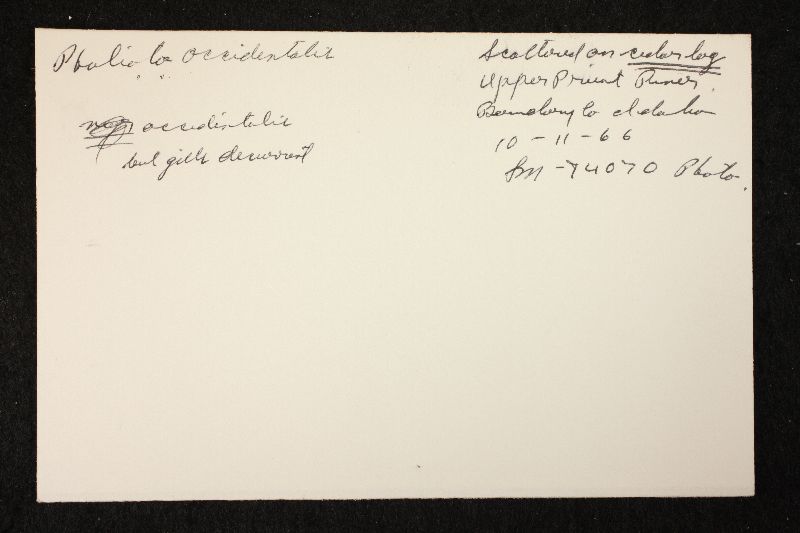 Pholiota occidentalis
near occidentalis
but gills decurrent
Scattered on cedar log
Upper Priest River
Boundary Co Idaho
10-11-66
Sm-74070 Photo.